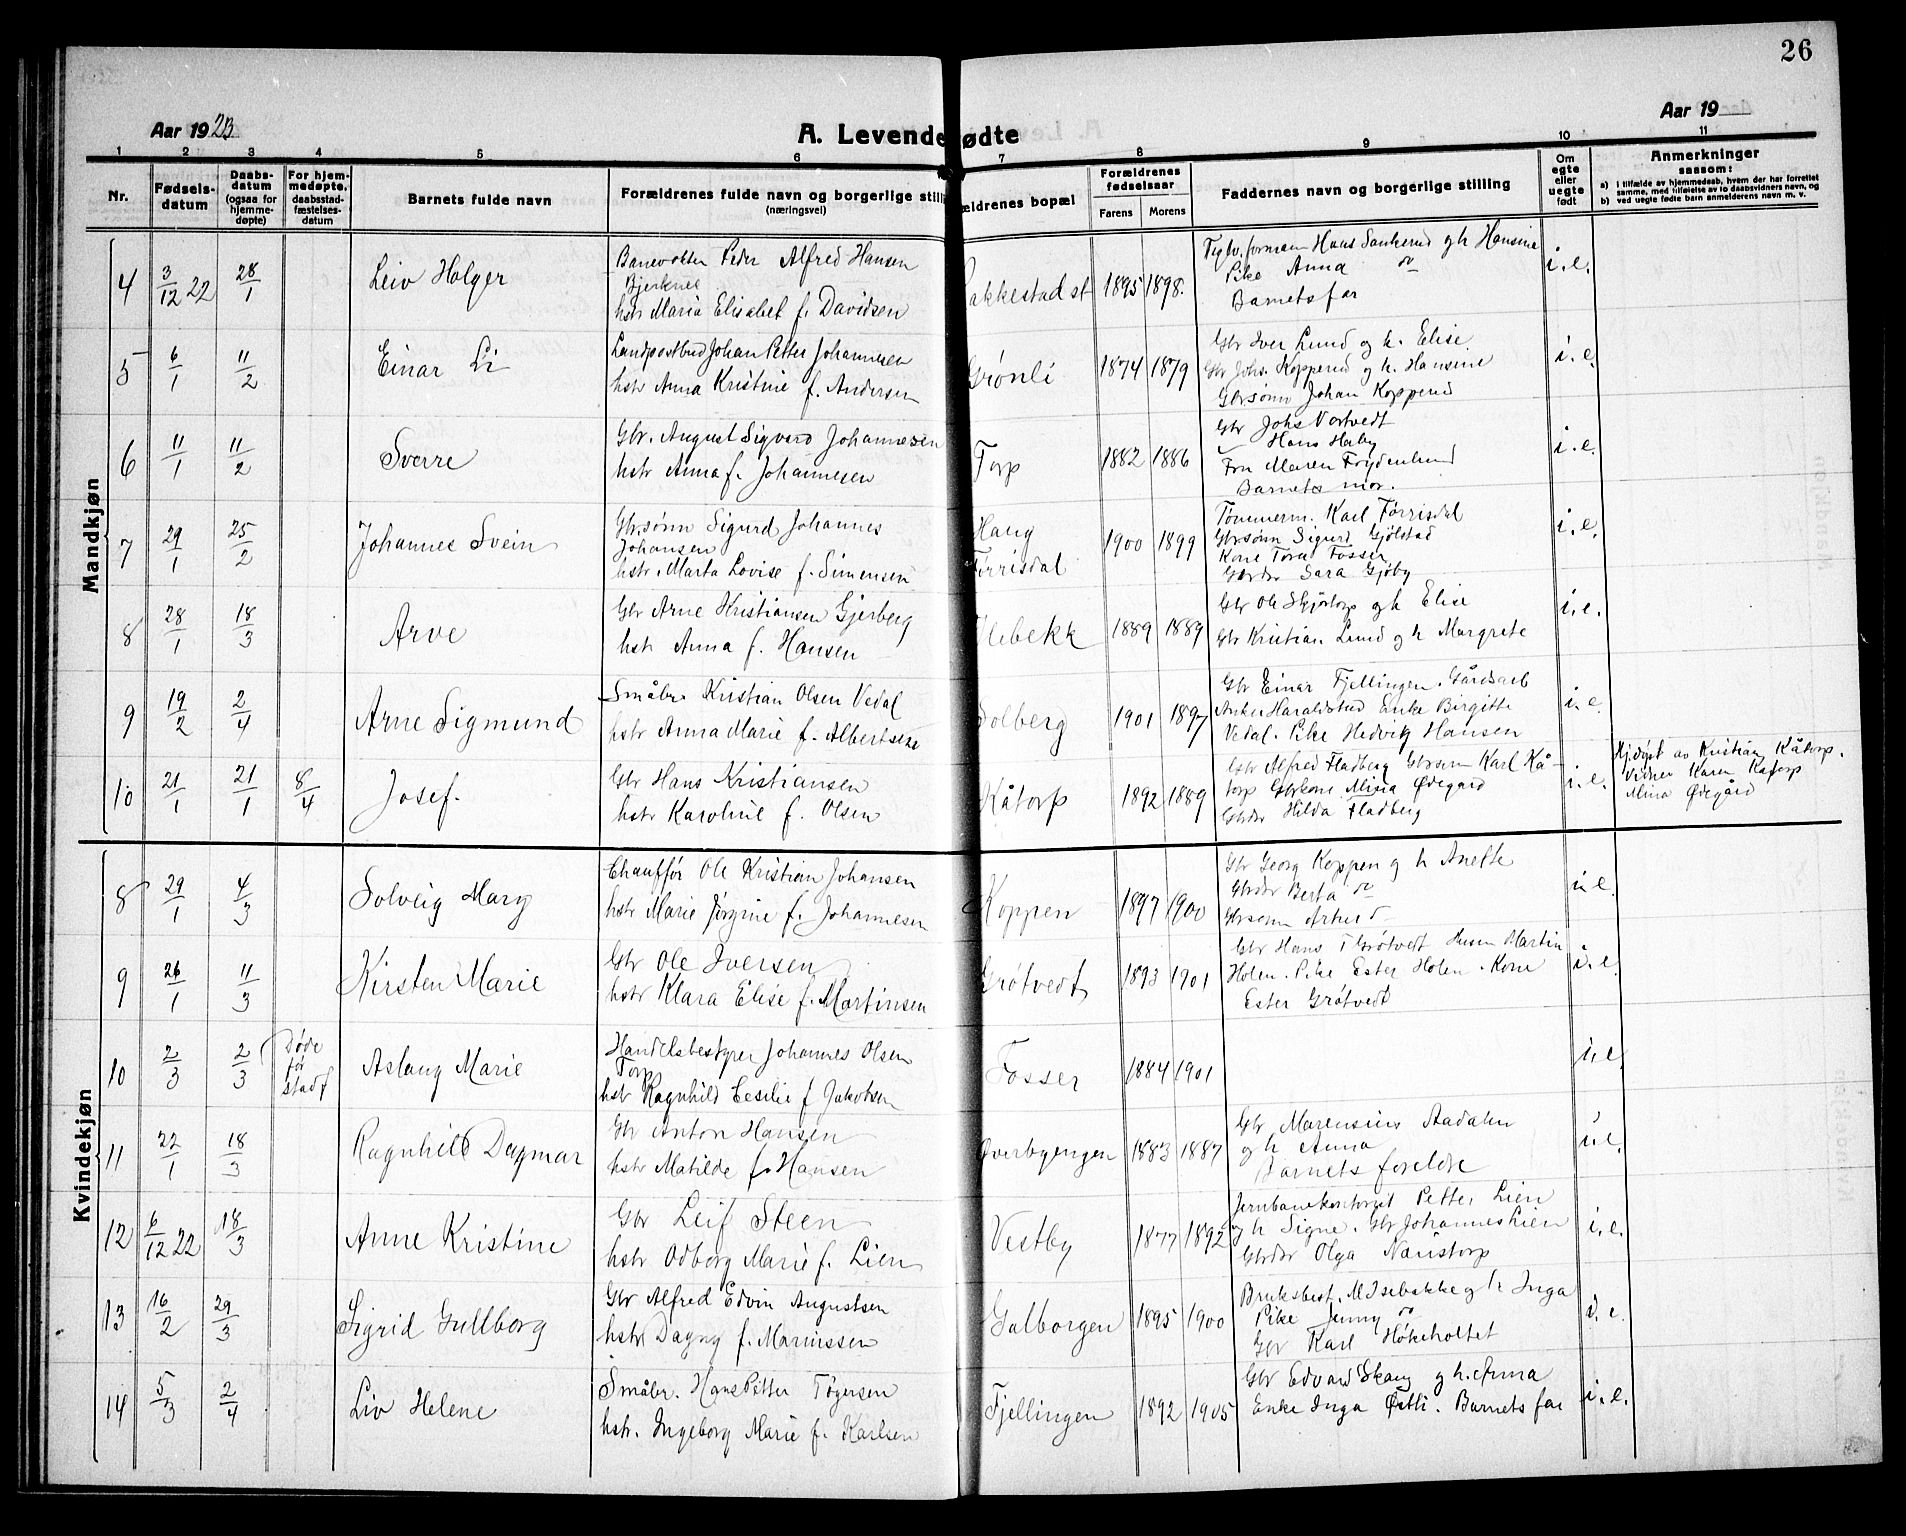 26
Aar 1923
A. Levendefødte
Aar 19
1 2 3 4 5 6 7 8 9 10 11
Nr.
Fødsels-datum
Daabs-datum (ogsaa for hjemme-døpte)
For hjem-medøpte, daabsstad-fæstelses-datum
Barnets fulde navn
Forældrenes fulde navn og borgerlige stilling (næringsvei)
ældrenes bopæl
Forældrenes fødselsaar
Farens Morens
Faddernes navn og borgerlige stilling
Om egte eller uegte født
Anmerkninger saasom:
a) i tilfælde av hjemmedaab, hvem der har forrettet samme, med tilføielse av to daabsvidners navn, og
b) ved uegte fødte barn anmelderens navn m. v.
Mandkjøn
4 3/12 22 28/1 Leiv Holger
Banevokter Peder Alfred Hansen
Bjerknes
hstr Maria Elisabet f. Davidsen
akkestad st 1895 1898.
formann Hans Sankerud og h Hansine
Pike Anna do
Barnets far
i.e.
5 6/1 11/2 Einar Li
Landpostbud Johan Petter Johannesen
hstr Anna Kristine f. Andersen
Grønli 1874 1879
Gbr Iver Lund og h. Elise
Gbr Johs. Kopperud og h. Hansine
Gbrsønn Johan Kopperud
i.e.
6 11/1 11/2 Sverre
Gbr. August Sigvard Johannesen
hstr Anna f. Johannesen
Torp 1882 1886
Gbr Johs Vortvedt
Hans Haby
Fru Maren Frydenlund
Barnets mor.
i.e.
7 29/1 25/2 Johannes Svein
Gbrsønn Sigurd Johannes
Johansen
hstr. Marta Lovise f. Simensen
Haug
Førrisdal 1900 1899
Tømmerm. Karl Førrisdal
Gbrsønn Sigurd Gjølstad
Kone Tora Fosser
Gbrdr Sara Gjøby
i.e.
8 28/1 18/3 Arve
Gbr Arne Kristiansen Gjerberg
hstr Anna f. Hansen
lebekk 1889 1889
Gbr Ole Skjørtorp og h Elise
Gbr Kristian Lund og h Margrete
i.e.
9 19/2 2/4 Arne Sigmund
Småbr. Kristian Olsen Vedal
hstr Anna Marie f. Albertsen
Solberg 1901 1897
Gbr Einar Fjellingen. Gårdsarb
Anker Haraldstad Enke Birgitte
Vedal. Pike Hedvig Hansen
i.e.
10 21/1 21/1 8/4 Josef.
Gbr Hans Kristiansen
hstr Karoline f. Olsen
Kåtorp 1892 1889
Gbr Alfred Fladberg Gbrsønn Karl Kå-
torp Gbrkone Mina Ødegård
Gbrdr Hilda Fladberg
i.e.
Hj.døpt av Kristian Kåtorp.
Vidner Karen Kåtorp
Mina Ødegård
Kvindekjøn
8 29/1 4/3 Solveig Mary
Chauffør Ole Kristian Johansen
hstr Marie Jørgine f. Johannesen
Koppen 1897 1900
Gbr Georg Koppen og h Anette
Gbrdr Berta do
Gbrsønn Artur do
i.e.
9 26/1 11/3 Kirsten Marie
Gbr Ole Iversen
hstr Klara Elise f. Martinsen
Grøtvedt 1893 1901
Gbr Hans T Grøtvedt Husm Martin
Holen. Pike Ester Holen. Kone
Ester Grøtvedt
i.e.
10 2/3 2/3 Døde før stadf
Aslaug Marie
Handelsbestyrer Johannes Olsen
Torp
hstr Ragnhild Cecilie f Jakobsen
Fosser 1884 1901
i.e.
11 22/1 18/3 Ragnhild Dagmar
Gbr Anton Hansen
hstr Matilde f. Hansen
Øverbyengen 1883 1887
Gbr Marensius Aadalen
og h Anna
Barnets foreldre
i.e.
12 6/12 22 18/3 Anne Kristine
Gbr Leif Steen
hstr Odborg Marie f. Lien
Vestby 1877 1892
Jernbanekontorist Petter Lien
og h Signe. Gbr Johannes Lien
Gbrdr Olga Naristorp
i.e.
13 16/2 29/3 Sigrid Gullborg
Gbr Alfred Edvin Augustsen
hstr Dagny f. Marinssen
Galborgen 1895 1900
Bruksbest. M Isebakke og h Inga
Pike Jenny do
Gbr Karl Høkeholtet
i.e.
14 5/3 2/4 Liv Helene
Småbr. Hans Petter Tøgersen
hstr. Ingeborg Marie f. Karlsen
Fjellingen 1892 1905
Gbr Edvard Skaug og h. Anna
Enke Inga Østli. Barnets far
i.e.